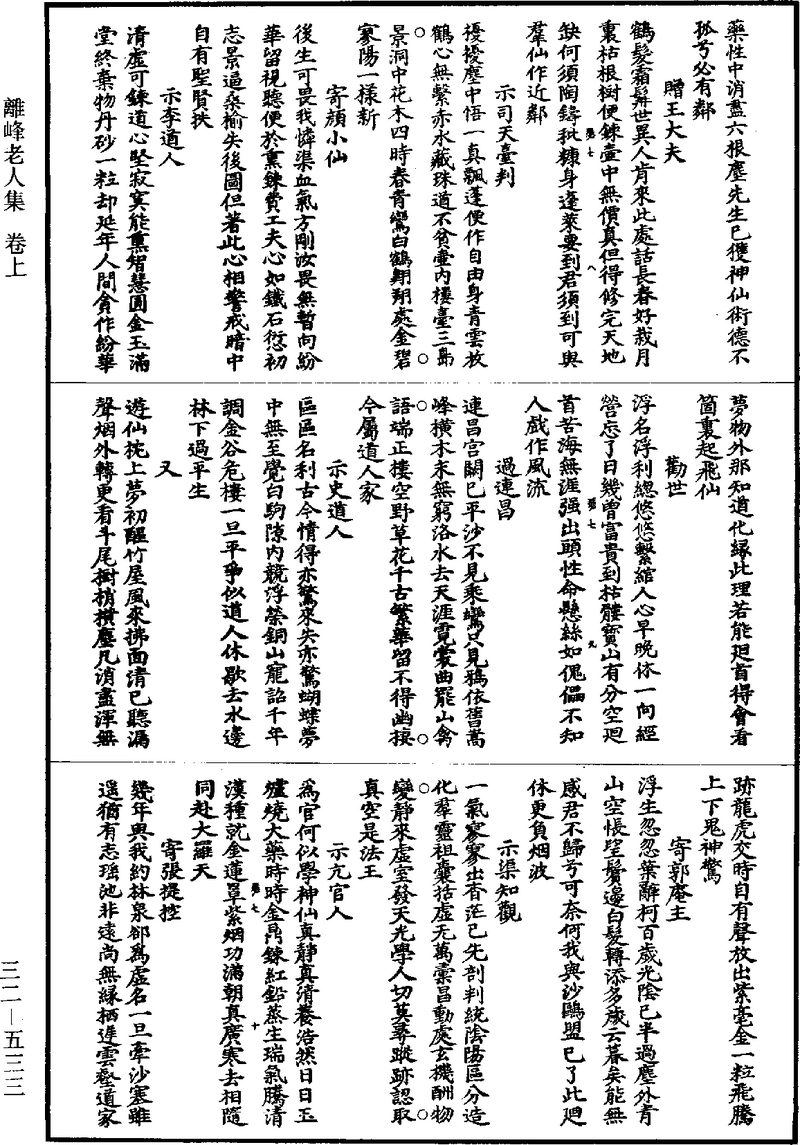 藥性中消盡六根塵先生已獲神仙術德不
孤兮必有鄰
贈王大夫
鶴髮霜髯世異人肯來此處話長春好栽月
裏枯根樹便鍊壺中無價真但得修完天地
缺何須陶鑄秕糠身蓬萊要到君須到可與
羣仙作近鄰
示司天臺判
擾擾塵中悟一真飄蓬便作自由身青雲放
鶴心無繫赤水藏珠道不貧壺內樓臺三島
景洞中花木四時春青鸞白鶴翱翔處金碧
寥陽一樣新
寄顏小仙
後生可畏我憐渠血氣方剛汝畏無暫向紛
華留視聽便於熏鍊費工夫心如鐵石愆初
志景逼桑榆失後圖但著此心相警戒暗中
自有聖賢扶
示李道人
清虛可鍊道心堅寂寞能熏智慧圓金玉滿
堂終棄物丹砂一粒却延年人間貪作紛華
夢物外那知道化緣此理若能廻首得會看
箇裏起飛仙
勸世
浮名浮利總悠悠繫綰人心早晚休一向經
營忘了日幾曾富貴到枯髏寶山有分空廻
首苦海無涯强出頭性命懸絲如傀儡不知
人戲作風流
過連昌
連昌宮闕已平沙不見乘鸞只見鴉依舊嵩
峰橫木末無窮洛水去天涯霓裳曲罷山禽
語端正樓空野草花千古繁華留不得幽棲
今屬道人家
示史道人
區區名利古今情得亦驚來失亦驚蝴蝶夢
中無至覺白駒隙內競浮榮銅山寵詔千年
調金谷危樓一旦平爭似道人休歇去水邊
林下過平生
又
遊仙枕上夢初醒竹屋風來拂面清已聽漏
聲烟外轉更看斗尾樹梢橫塵凡消盡渾無
跡龍虎交時自有聲放出紫毫金一粒飛騰
上下鬼神驚
寄郭庵主
浮生忽忽葉辭柯百歲光陰已半過塵外青
山空悵望鬢邊白髮轉添多歲云暮矣能無
感君不歸兮可奈何我與沙鷗盟已了此廻
休更負烟波
示渠知觀
一氣寥寥出杳茫已先剖判統陰陽區分造
化羣靈祖囊括虛无萬彙昌動處玄機酬物
變靜來虛室發天光學人切莫尋蹤跡認取
真空是法王
示亢官人
為官何似學神仙真靜真清養浩然日日玉
爐燒大藥時時金鼎鍊紅鉛蒸生瑞氣騰清
漢種就金蓮罩紫烟功滿朝真廣寒去相隨
同赴大羅天
寄張提控
幾年與我約林泉卻為虛名一旦牽沙塞雖
遥猶有志瑤池非遠尚無緣栖遲雲壑道家
離峰老人集 卷上
三二—五三三